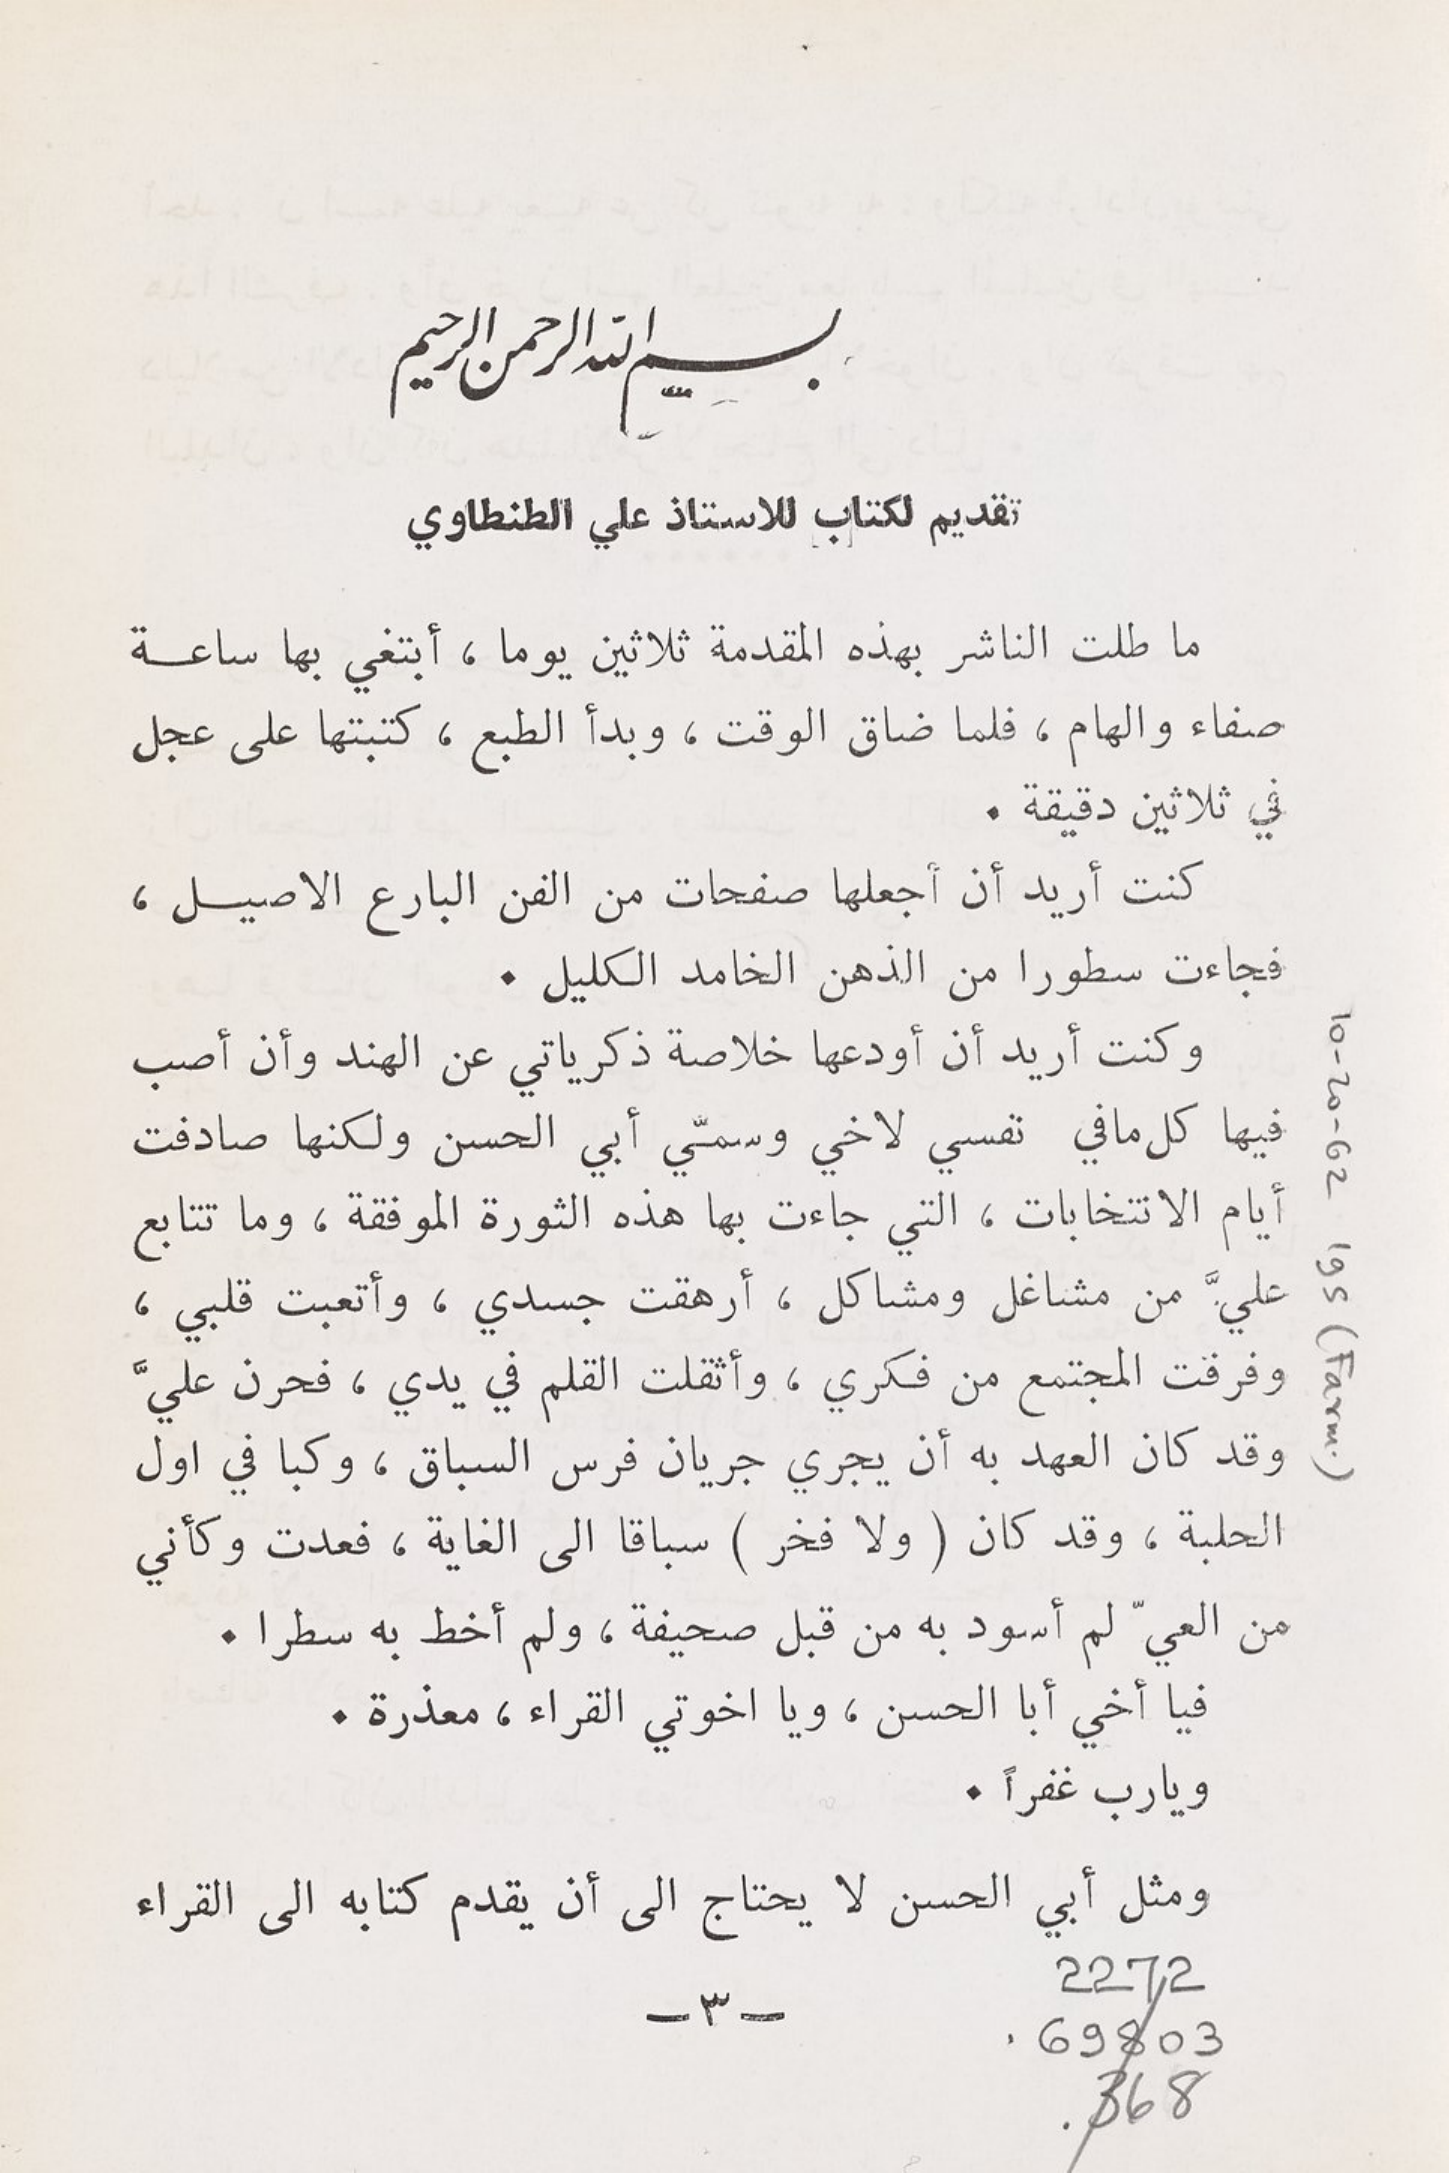 بسم الله الرحمن الرحيم
تقديم لكتاب للاستاذ علي الطنطاوي
ما طلت الناشر بهذه المقدمة ثلاثين يوما ، أبتغي بها ساعـــة
صفاء والهام ، فلما ضاق الوقت ، وبدأ الطبع ، كتبتها على عجل
في ثلاثين دقيقة .
كنت أريد أن أجعلها صفحات من الفن البارع الاصيـــل ،
فجاءت سطورا من الذهن الخامد الكليل .
وكنت أريد أن أودعها خلاصة ذكرياتي عن الهند وأن أصب
فيها كل مافي نفسي لاخي وسميّي أبي الحسن ولكنها صادفت
أيام الانتخابات ، التي جاءت بها هذه الثورة الموفقة ، وما تتابع
عليَّ من مشاغل ومشاكل ، أرهقت جسدي ، وأتعبت قلبي ،
وفرقت المجتمع من فكري ، وأثقلت القلم في يدي ، فحرن عليَّ
وقد كان العهد به أن يجري جريان فرس السباق ، وكبا في اول
الحلبة ، وقد كان ( ولا فخر ) سباقا الى الغاية ، فعدت وكأني
من العيّ لم أسود به من قبل صحيفة ، ولم أخط به سطرا .
فيا أخي أبا الحسن ، ويا اخوتي القراء ، معذرة .
ويارب غفراً .
ومثل أبي الحسن لا يحتاج الى أن يقدم كتابه الى القراء
— ٣ —
2272
.69803
.368
10-20-62 195 (Farm.)